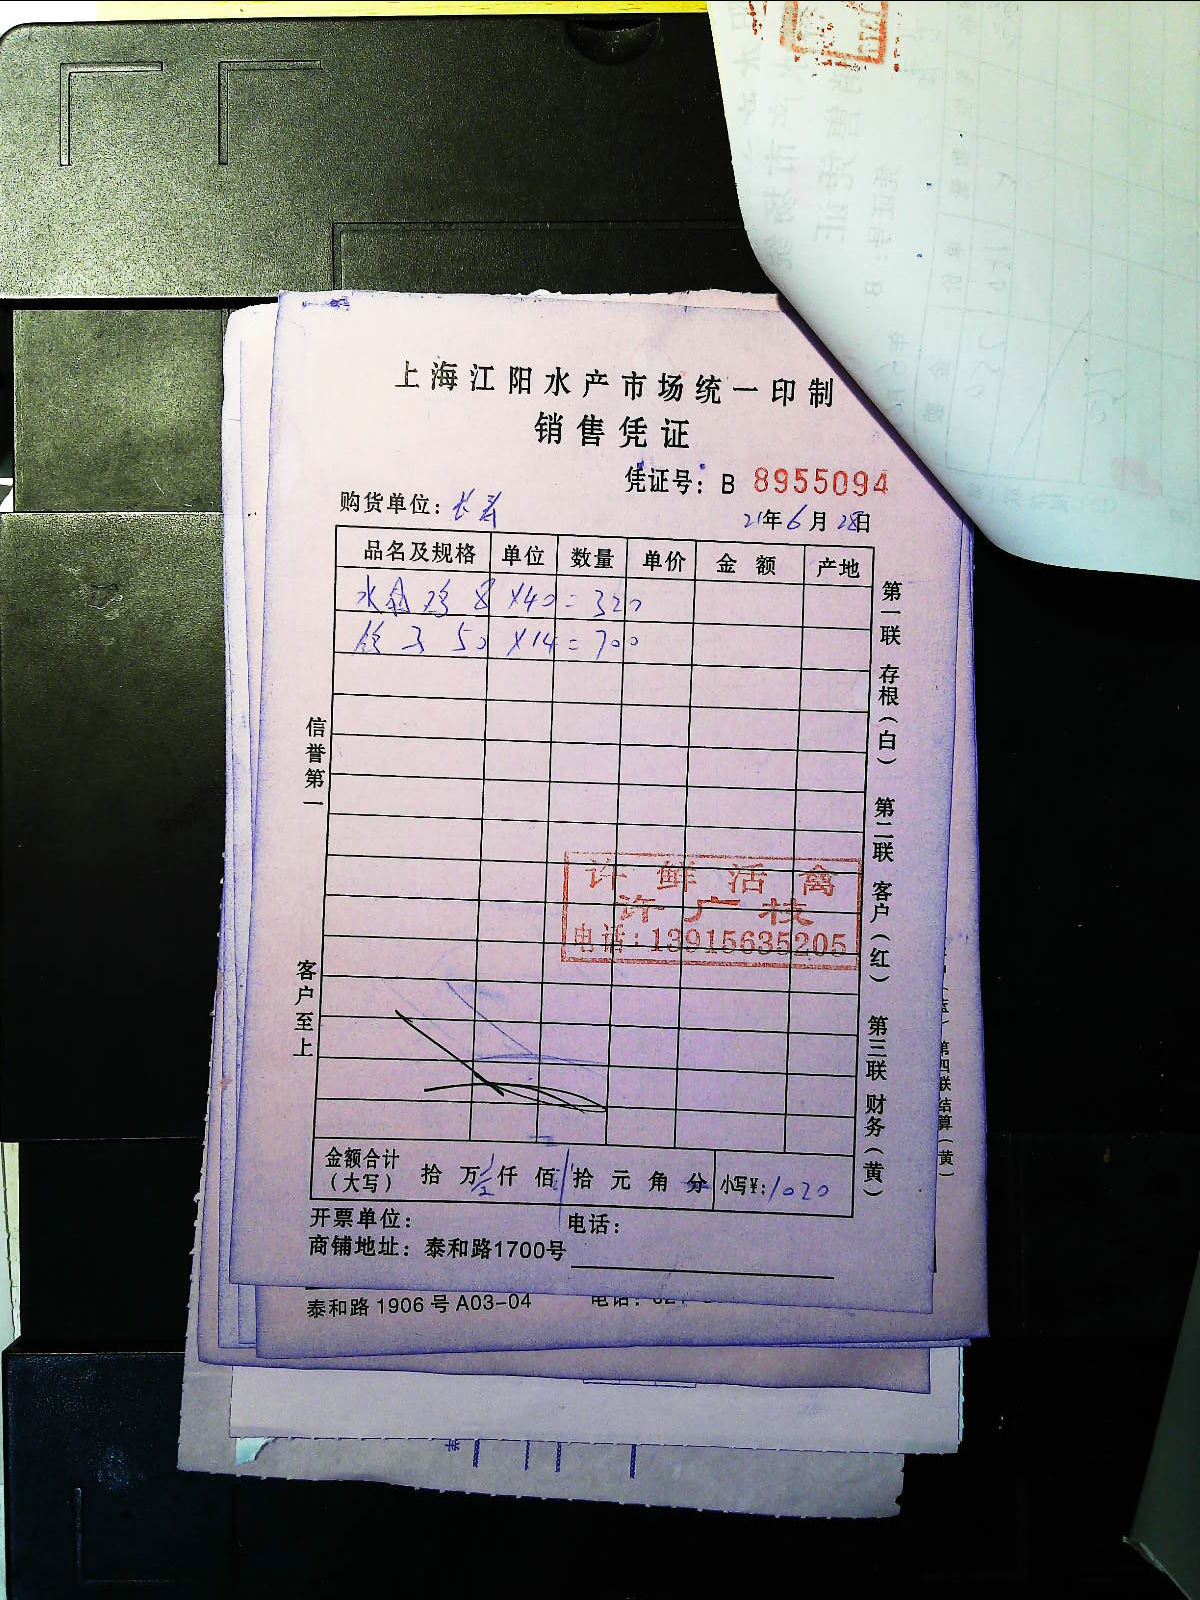 上海江阳水产市场统一印制
销售凭证
凭证号：B 8955094
购货单位：长寿
21年6月28日
品名及规格 单位 数量 单价 金额 产地
水 鸡 8 X40=320
鸽子 50 X14=700
信誉第一
客户至上
第一联 存根（白） 第二联 客户（红） 第三联 财务（黄）
许鲜活禽
许广枝
电话：13915635205
金额合计（大写） 拾 万 壹 仟 佰 拾 元 角 分 小写¥：1020
开票单位： 电话：
商铺地址：泰和路1700号
泰和路 1906 号 A03-04
第四联 结算（黄）